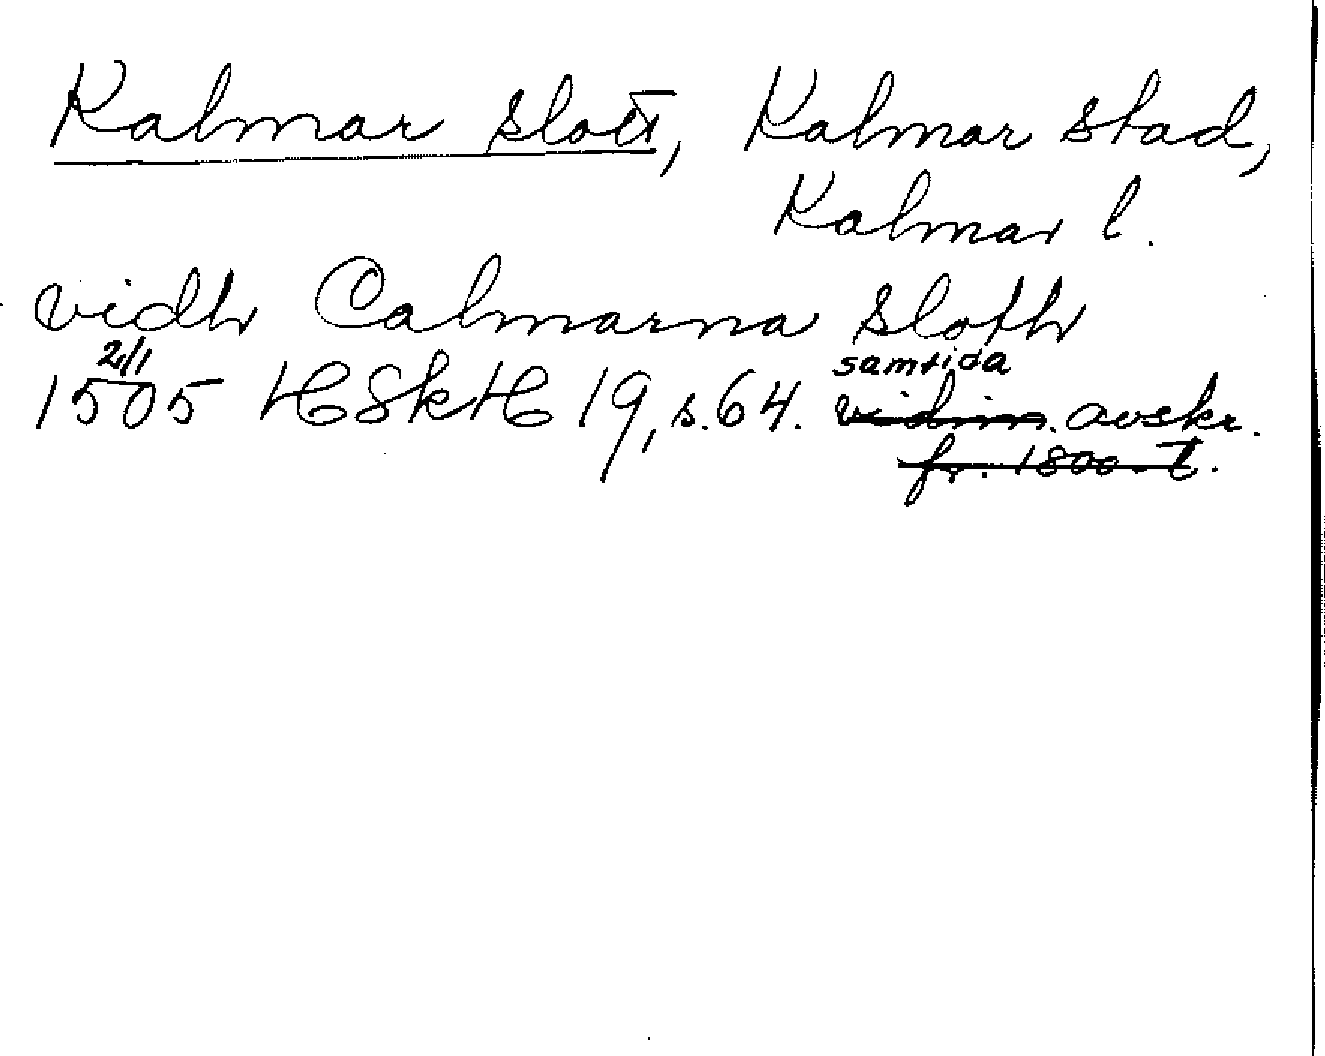 Kalmar slott, Kalmar stad,
Kalmar l.
vidh Calmarna Sloth
2/1 samtida
1505 HSkH 19, s. 64. vidim. avskr.
fr. 1800-t.